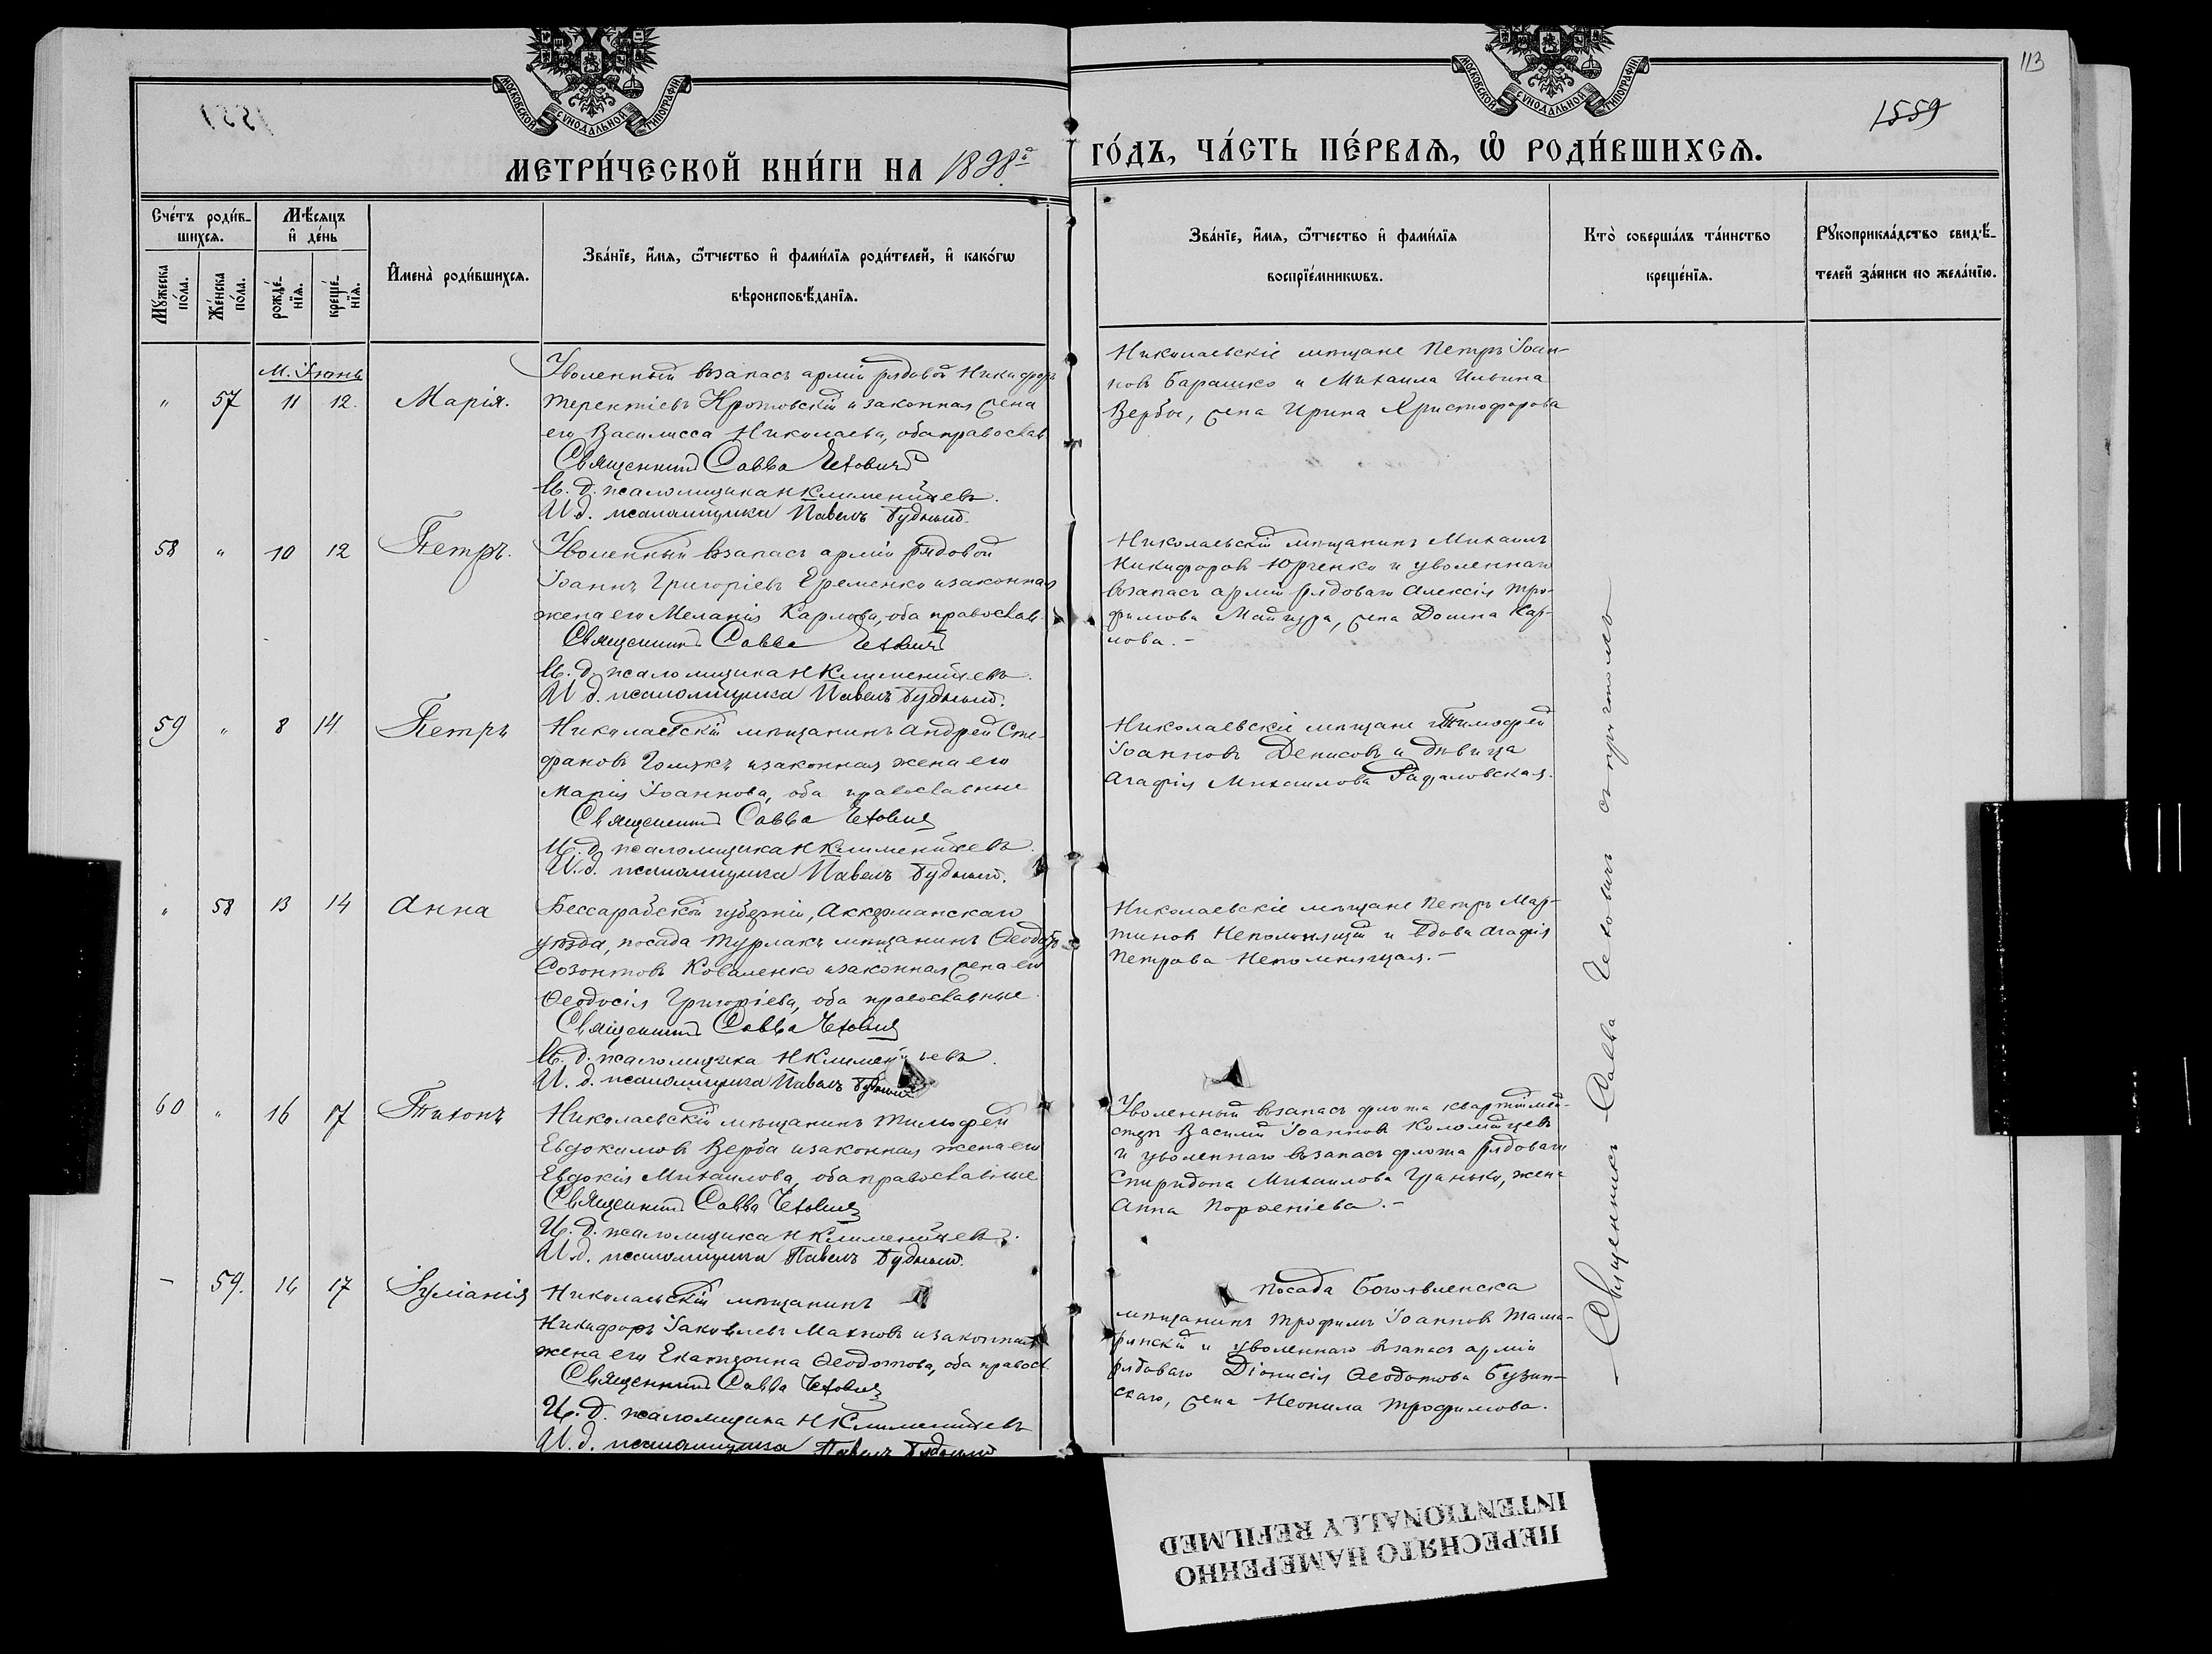 113
1559
МОСКОВСКОЙ СѴНОДАЛЬНОЙ ТИПОГРАФІИ
МОСКОВСКОЙ СѴНОДАЛЬНОЙ ТИПОГРАФІИ
МЕТРИ́ЧЕСКОЙ КНИ́ГИ НА 1898й
ГО́ДЪ, ЧА́СТЬ ПЕ́РВАѦ, Ѡ РОДИ́ВШИХСѦ.
Сче́тъ роди́в-
шихсѧ.
Мꙋжеска по́ла.
Же́нска по́ла.
Мѣ́сѧцъ
и҆ де́нь
рожде́-
нїѧ.
креще́-
нїѧ.
И҆мена̀ роди́вшихсѧ.
Зва́нїе, и҆́мѧ, ѻ҆́тчество и҆ фами́лїѧ роди́телей, и҆ како́гѡ
вѣроисповѣ́данїѧ.
Зва́нїе, и҆́мѧ, ѻ҆́тчество и҆ фами́лїѧ
воспрїе́мникѡвъ.
Кто̀ соверша́лъ та́инство
креще́нїѧ.
Рꙋкоприкла́дство свидѣ́-
телей за́писи по жела́нїю.
М. Іюнь
" 57 11 12. Марія.
Уволенный въ запасъ арміи рядовой Никифоръ
Терентіевъ Кротовскій и законная жена
его Василисса Николаева, оба православ.
Священникъ Савва Чехович
И. д. псаломщика Н Клименійчевъ.
И д. псаломщика Павелъ Будный.
Николаевскіе мѣщане Петръ Іоан-
новъ Барашко и Михаила Ильина
Вербы, жена Ирина Христофорова
58 " 10 12 Петръ.
Уволенный въ запасъ арміи рядовой
Іоаннъ Григоріевъ Еременко и законная
жена его Меланія Карлова, оба православ.
Священникъ Савва Чехович
И. д. псаломщика Н Клименійчевъ.
И д. псаломщика Павелъ Будный.
Николаевскій мѣщанинъ Михаилъ
Никифоровъ Юрченко и уволеннаго
въ запасъ арміи рядоваго Алексія Тро-
фимова Майгура, жена Домна Кар-
лова. -
59 " 8 14 Петръ
Николаевскій мѣщанинъ Андрей Сте-
фановъ Голякъ и законная жена его
Марія Іоаннова, оба православные
Священникъ Савва Чехович
И. д. псаломщика Н Клименійчевъ.
И. д. псаломщика Павелъ Будный.
Николаевскіе мѣщане Тимофей
Іоанновъ Денисовъ и дѣвица
Агафія Михаилова Рафаловская.
" 58 13 14 Анна
Бессарабской губерніи, Аккерманскаго
уѣзда, посада Турлакъ мѣщанинъ Ѳеодоръ
Созонтовъ Коваленко и законная жена его
Ѳеодосія Григоріева, оба православные
Священникъ Савва Чехович
И. д. псаломщика Н Клименійчевъ.
И. д. псаломщика Павелъ Будный
Николаевскіе мѣщане Петръ Мар-
тиновъ Непомнящій и вдова Агафія
Петрова Непомнящая. -
60 " 16 17 Тихонъ
Николаевскій мѣщанинъ Тимофей
Евдокимовъ Верба и законная жена его
Евдокія Михаилова, оба православные
Священникъ Савва Чехович
И. д. псаломщика Н Клименійчевъ.
И. д. псаломщика Павелъ Будный.
Уволенный въ запасъ флота квартирмей-
стеръ Василій Іоанновъ Коломійцевъ
и уволеннаго въ запасъ флота рядоваго
Спиридона Михаилова Граньки, жена
Анна Порфеніева. -
- 59. 16 17 Іуліанія
Николаевскій мѣщанинъ
Никифоръ Іаковлевъ Махновъ и законная
жена его Екатерина Ѳеодотова, оба правосл.
Священникъ Савва Чехович
И. д. псаломщика Н Клименійчевъ
И. д. псаломщика Павелъ Будный
Посада Богоявленска
мѣщанинъ Трофимъ Іоанновъ Тама-
ринскій и уволеннаго въ запасъ арміи
рядоваго Діонисія Ѳеодотова Бузин-
скаго, жена Неонила Трофимова.
Священникъ Савва Чеховичъ съ причтомъ
ПЕРЕСНЯТО НАМЕРЕННО
INTENTIONALLY REFILMED